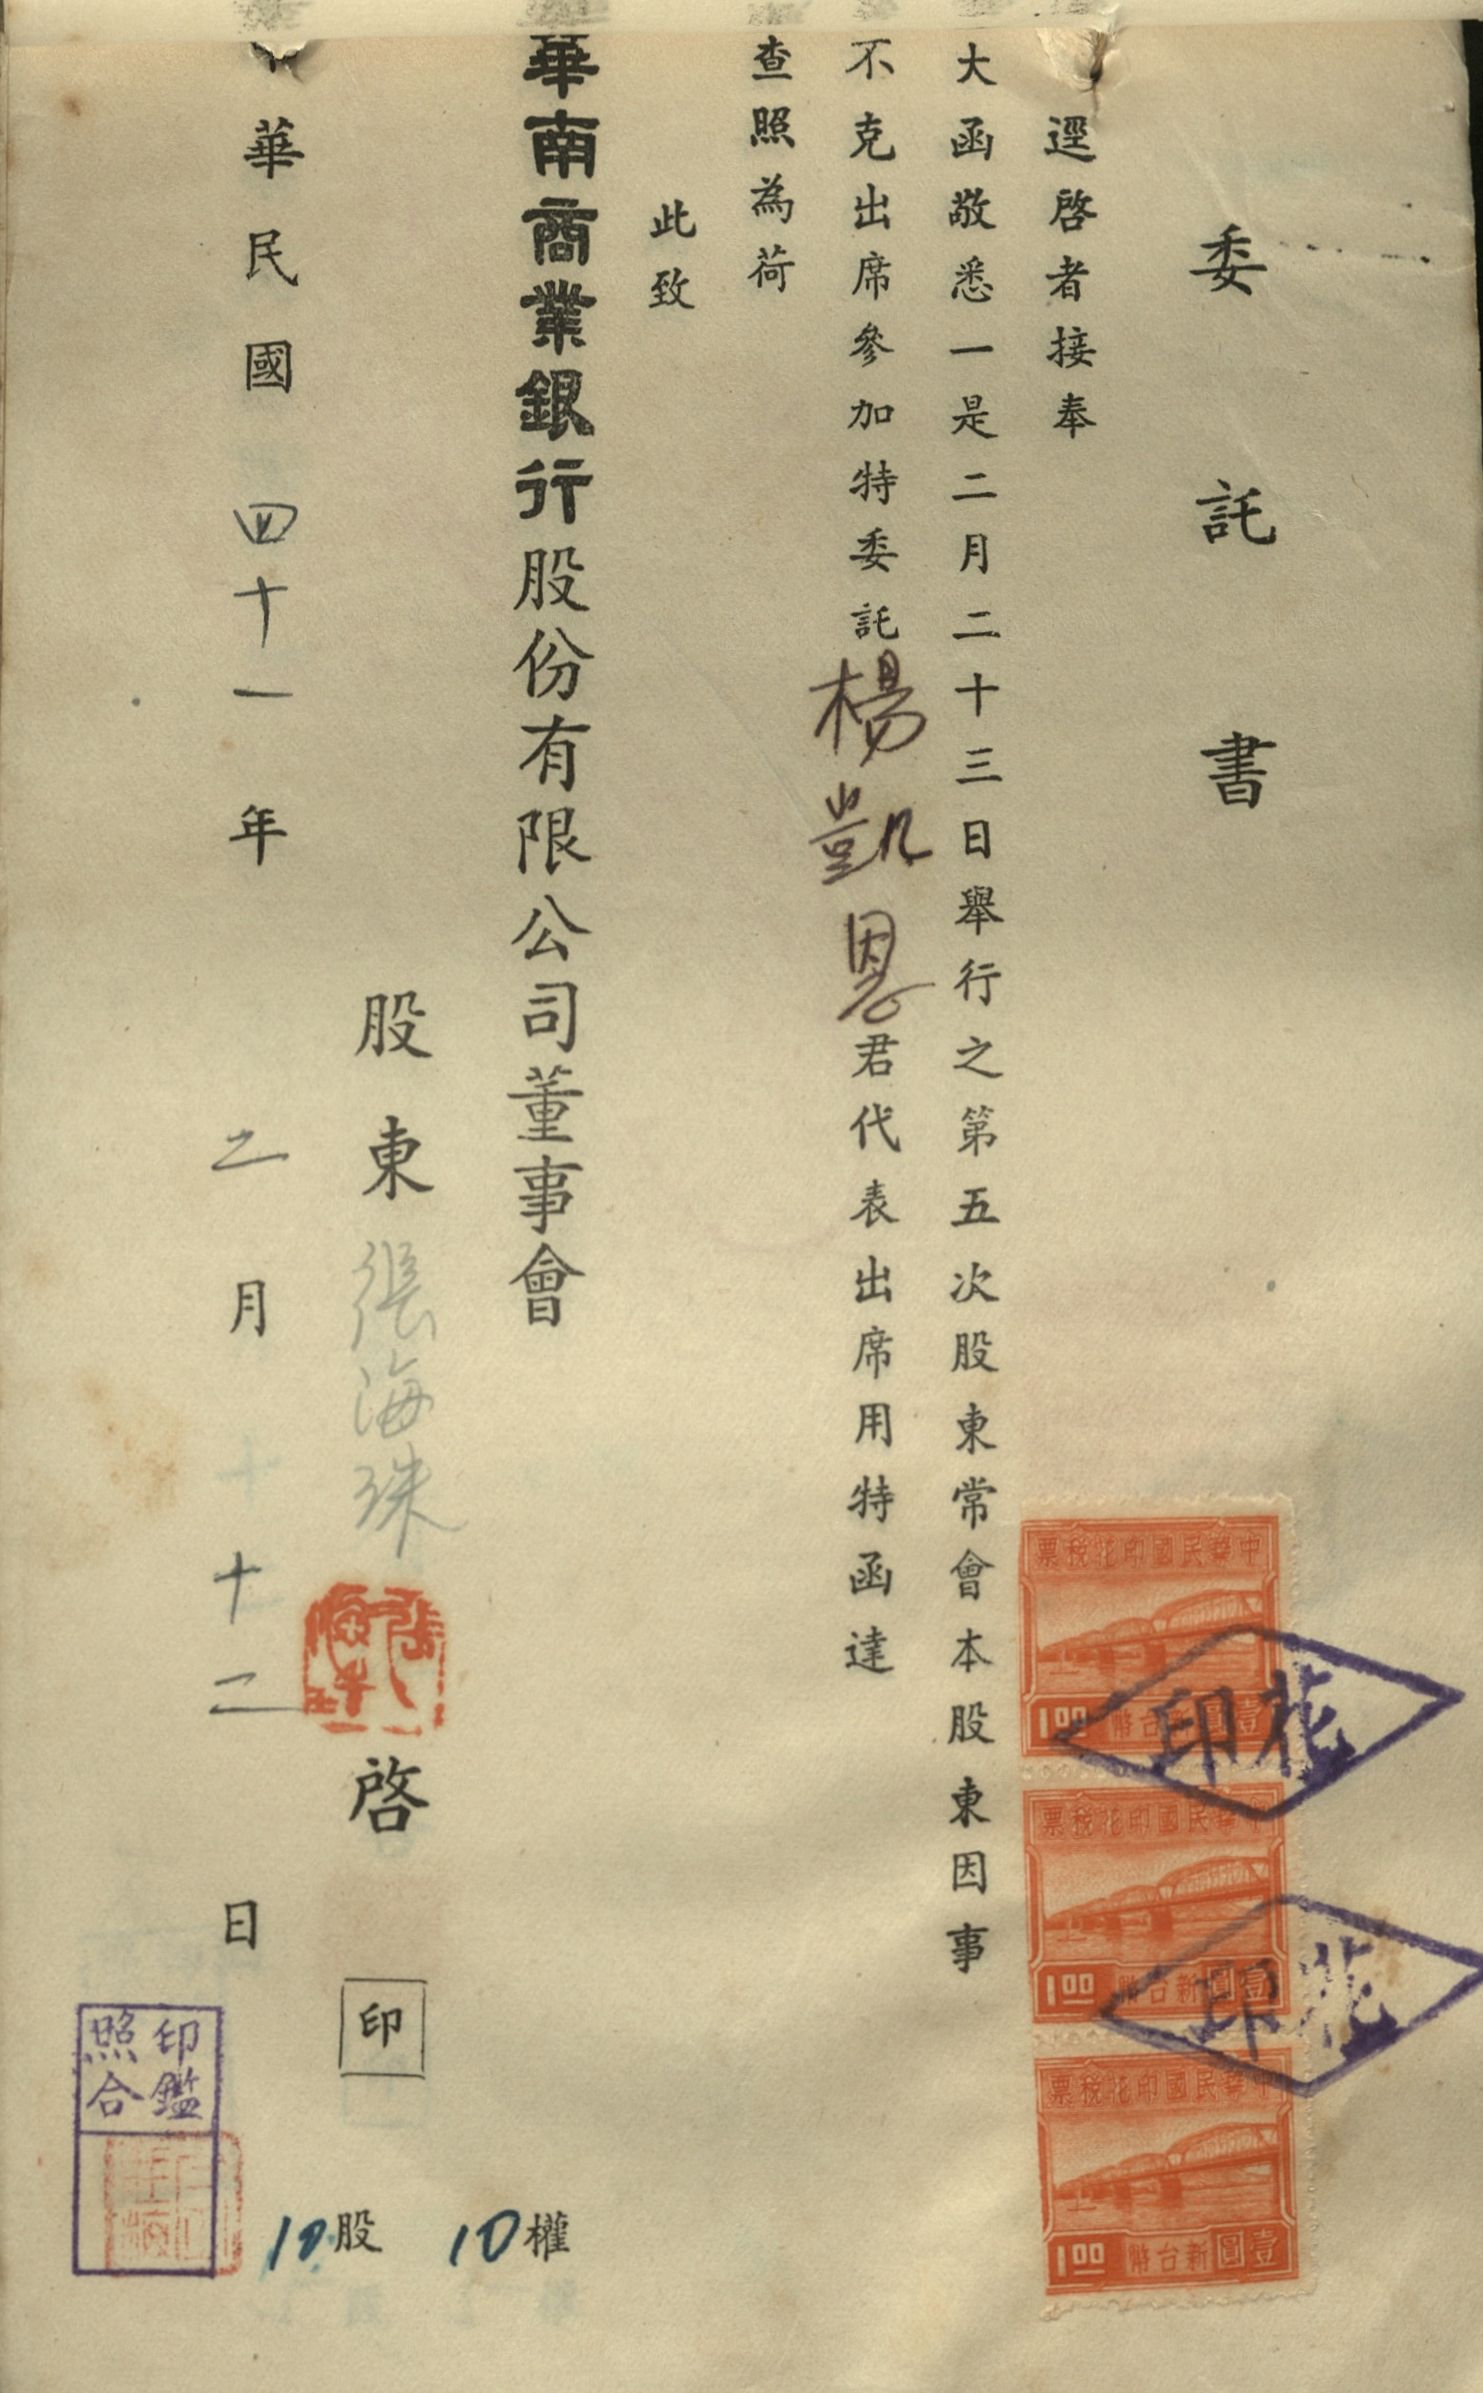 委託書
逕啓者接奉
大函敬悉一是二月二十三日舉行之第五次股東常會本股東因事
不克出席參加特委託楊凱恩君代表出席用特函達
查照為荷
此致
華南商業銀行股份有限公司董事會
股東張海珠啓 印
華民國四十一年二月十二日
10權
10股
印鑑
照合
中華民國印花税票
1.00 壹圓新台幣
中華民國印花税票
1.00 壹圓新台幣
中華民國印花税票
1.00 壹圓新台幣
花印
花印